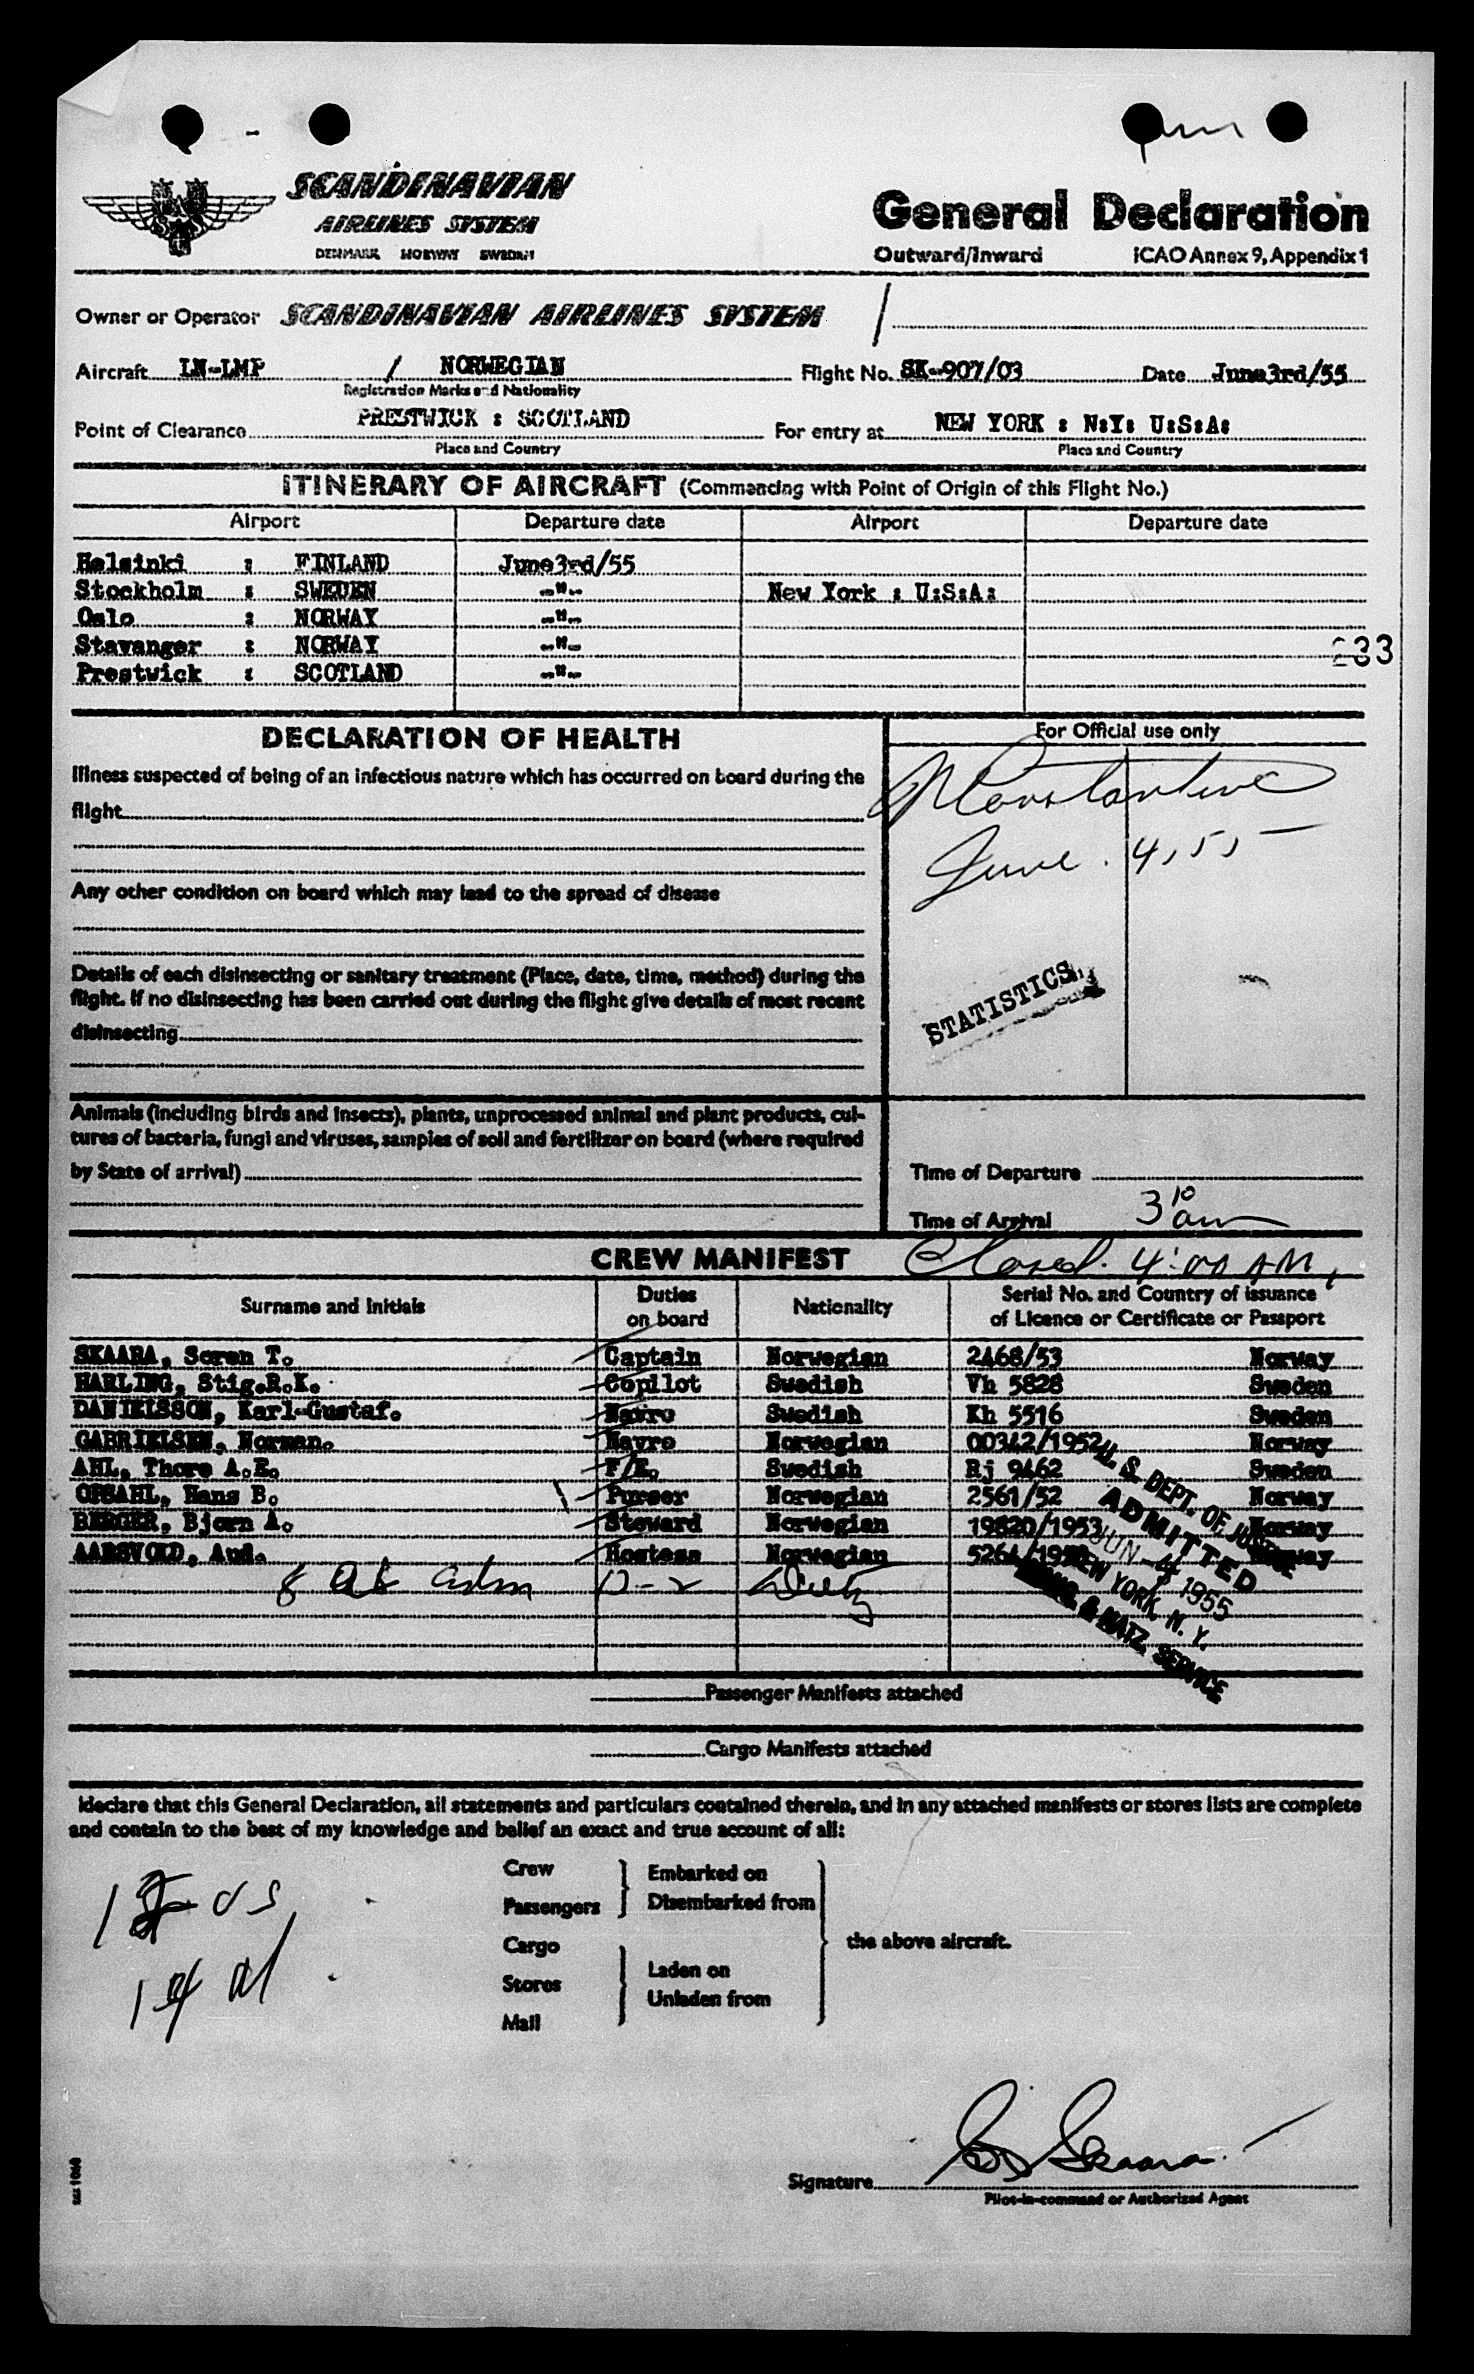 SCANDINAVIAN
AIRLINES SYSTEM
DENMARK NORWAY SWEDEN
General Declaration
Outward/Inward ICAO Annex 9, Appendix 1
Owner or Operator SCANDINAVIAN AIRLINES SYSTEM /
Aircraft LN-LMP / NORWEGIAN Flight No. SK-907/03 Date June3rd/55
Registration Marks and Nationality
Point of Clearance PRESTWICK : SCOTLAND For entry at NEW YORK : N:Y: U:S:A:
Place and Country Place and Country
ITINERARY OF AIRCRAFT (Commencing with Point of Origin of this Flight No.)
Airport Departure date Airport Departure date
Helsinki : FINLAND June3rd/55
Stockholm : SWEDEN -"- New York : U:S:A:
Oslo : NORWAY -"-
Stavanger : NORWAY -"-
233
Prestwick : SCOTLAND -"-
DECLARATION OF HEALTH
For Official use only
Illness suspected of being of an infectious nature which has occurred on board during the
flight
Constantine
June 4, 55
Any other condition on board which may lead to the spread of disease
Details of each disinsecting or sanitary treatment (Place, date, time, method) during the
flight. If no disinsecting has been carried out during the flight give details of most recent
disinsecting
STATISTICS
Animals (including birds and insects), plants, unprocessed animal and plant products, cul-
tures of bacteria, fungi and viruses, samples of soil and fertilizer on board (where required
by State of arrival)
Time of Departure
Time of Arrival 3 10 am
CREW MANIFEST Closed. 4:00 AM,
Surname and Initials Duties on board Nationality Serial No. and Country of issuance of Licence or Certificate or Passport
SKAARA, Soren T. Captain Norwegian 2468/53 Norway
HARLING, Stig.R.K. Copilot Swedish Vh 5828 Sweden
DANIELSSON, Karl-Gustaf. Navro Swedish Kh 5516 Sweden
GABRIELSEN, Norman. Navro Norwegian 00342/1952 Norway
AHL, Thore A.E. F/E. Swedish Rj 9462 Sweden
OPSAHL, Hans B. Purser Norwegian 2561/52 Norway
BERGER, Bjorn A. Steward Norwegian 19820/1953 Norway
AARSVOLD, Aud. Hostess Norwegian Norway
8 D-2
U. S. DEPT. OF JUSTICE
ADMITTED
JUN -4 1955
NEW YORK, N. Y.
IMMIG. & NATZ. SERVICE
Passenger Manifests attached
Cargo Manifests attached
I declare that this General Declaration, all statements and particulars contained therein, and in any attached manifests or stores lists are complete
and contain to the best of my knowledge and belief an exact and true account of all:
Crew
Passengers
Cargo
Stores
Mail
Embarked on
Disembarked from
Laden on
Unladen from
the above aircraft.
US
Signature Skaara
Pilot-in-command or Authorized Agent